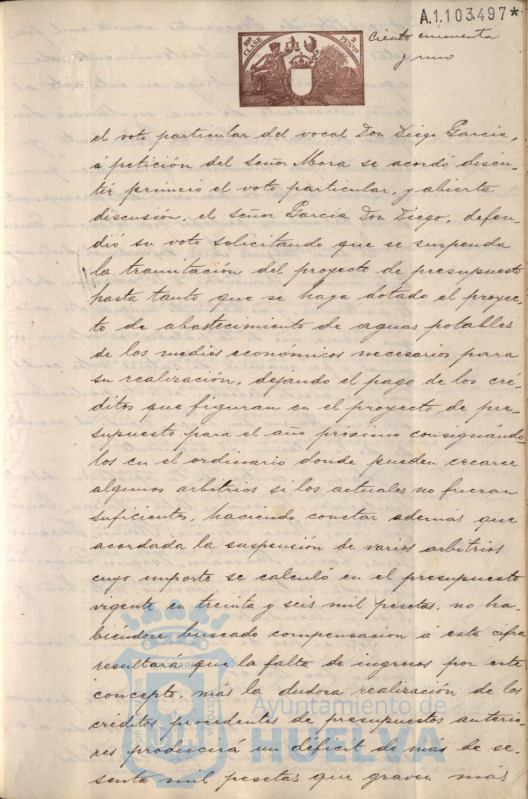 A.1.103.497*
8ª CLASE 2 PESETAS
Ciento cincuenta
y uno
el voto particular del vocal Don Diego García,
á petición del Señor Mora se acordó discu-
tir primero el voto particular, y abierta
discusión, el señor García Don Diego, defen-
dió su voto solicitando que se suspenda
la tramitación del proyecto de presupuesto
hasta tanto que se haya dotado el proyec-
to de abastecimiento de aguas potables
de los medios económicos necesarios para
su realización, dejando el pago de los cré-
ditos que figuran en el proyecto de pre-
supuesto para el año próximo consignándo-
los en el ordinario donde pueden crearse
algunos arbitrios si los actuales no fueran
suficientes, haciendo constar además que
acordada la suspensión de varios arbitrios
cuyo importe se calculó en el presupuesto
vigente en treinta y seis mil pesetas, no ha-
biéndose buscado compensación á esta cifra
resultará que la falta de ingresos por este
concepto, más la dudosa realización de los
créditos procedentes de presupuestos anterio-
res producirá un déficit de más de se-
senta mil pesetas que graven más
Ayuntamiento de
HUELVA